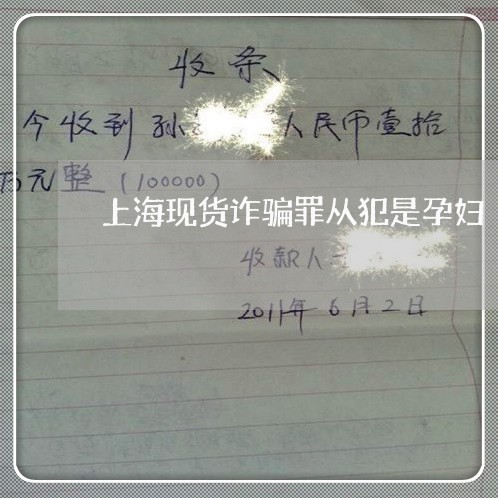 收条
今收到孙 人民币壹拾
万元整(100000)
上海现货诈骗罪从犯是孕妇
收款人
2011年6月2日